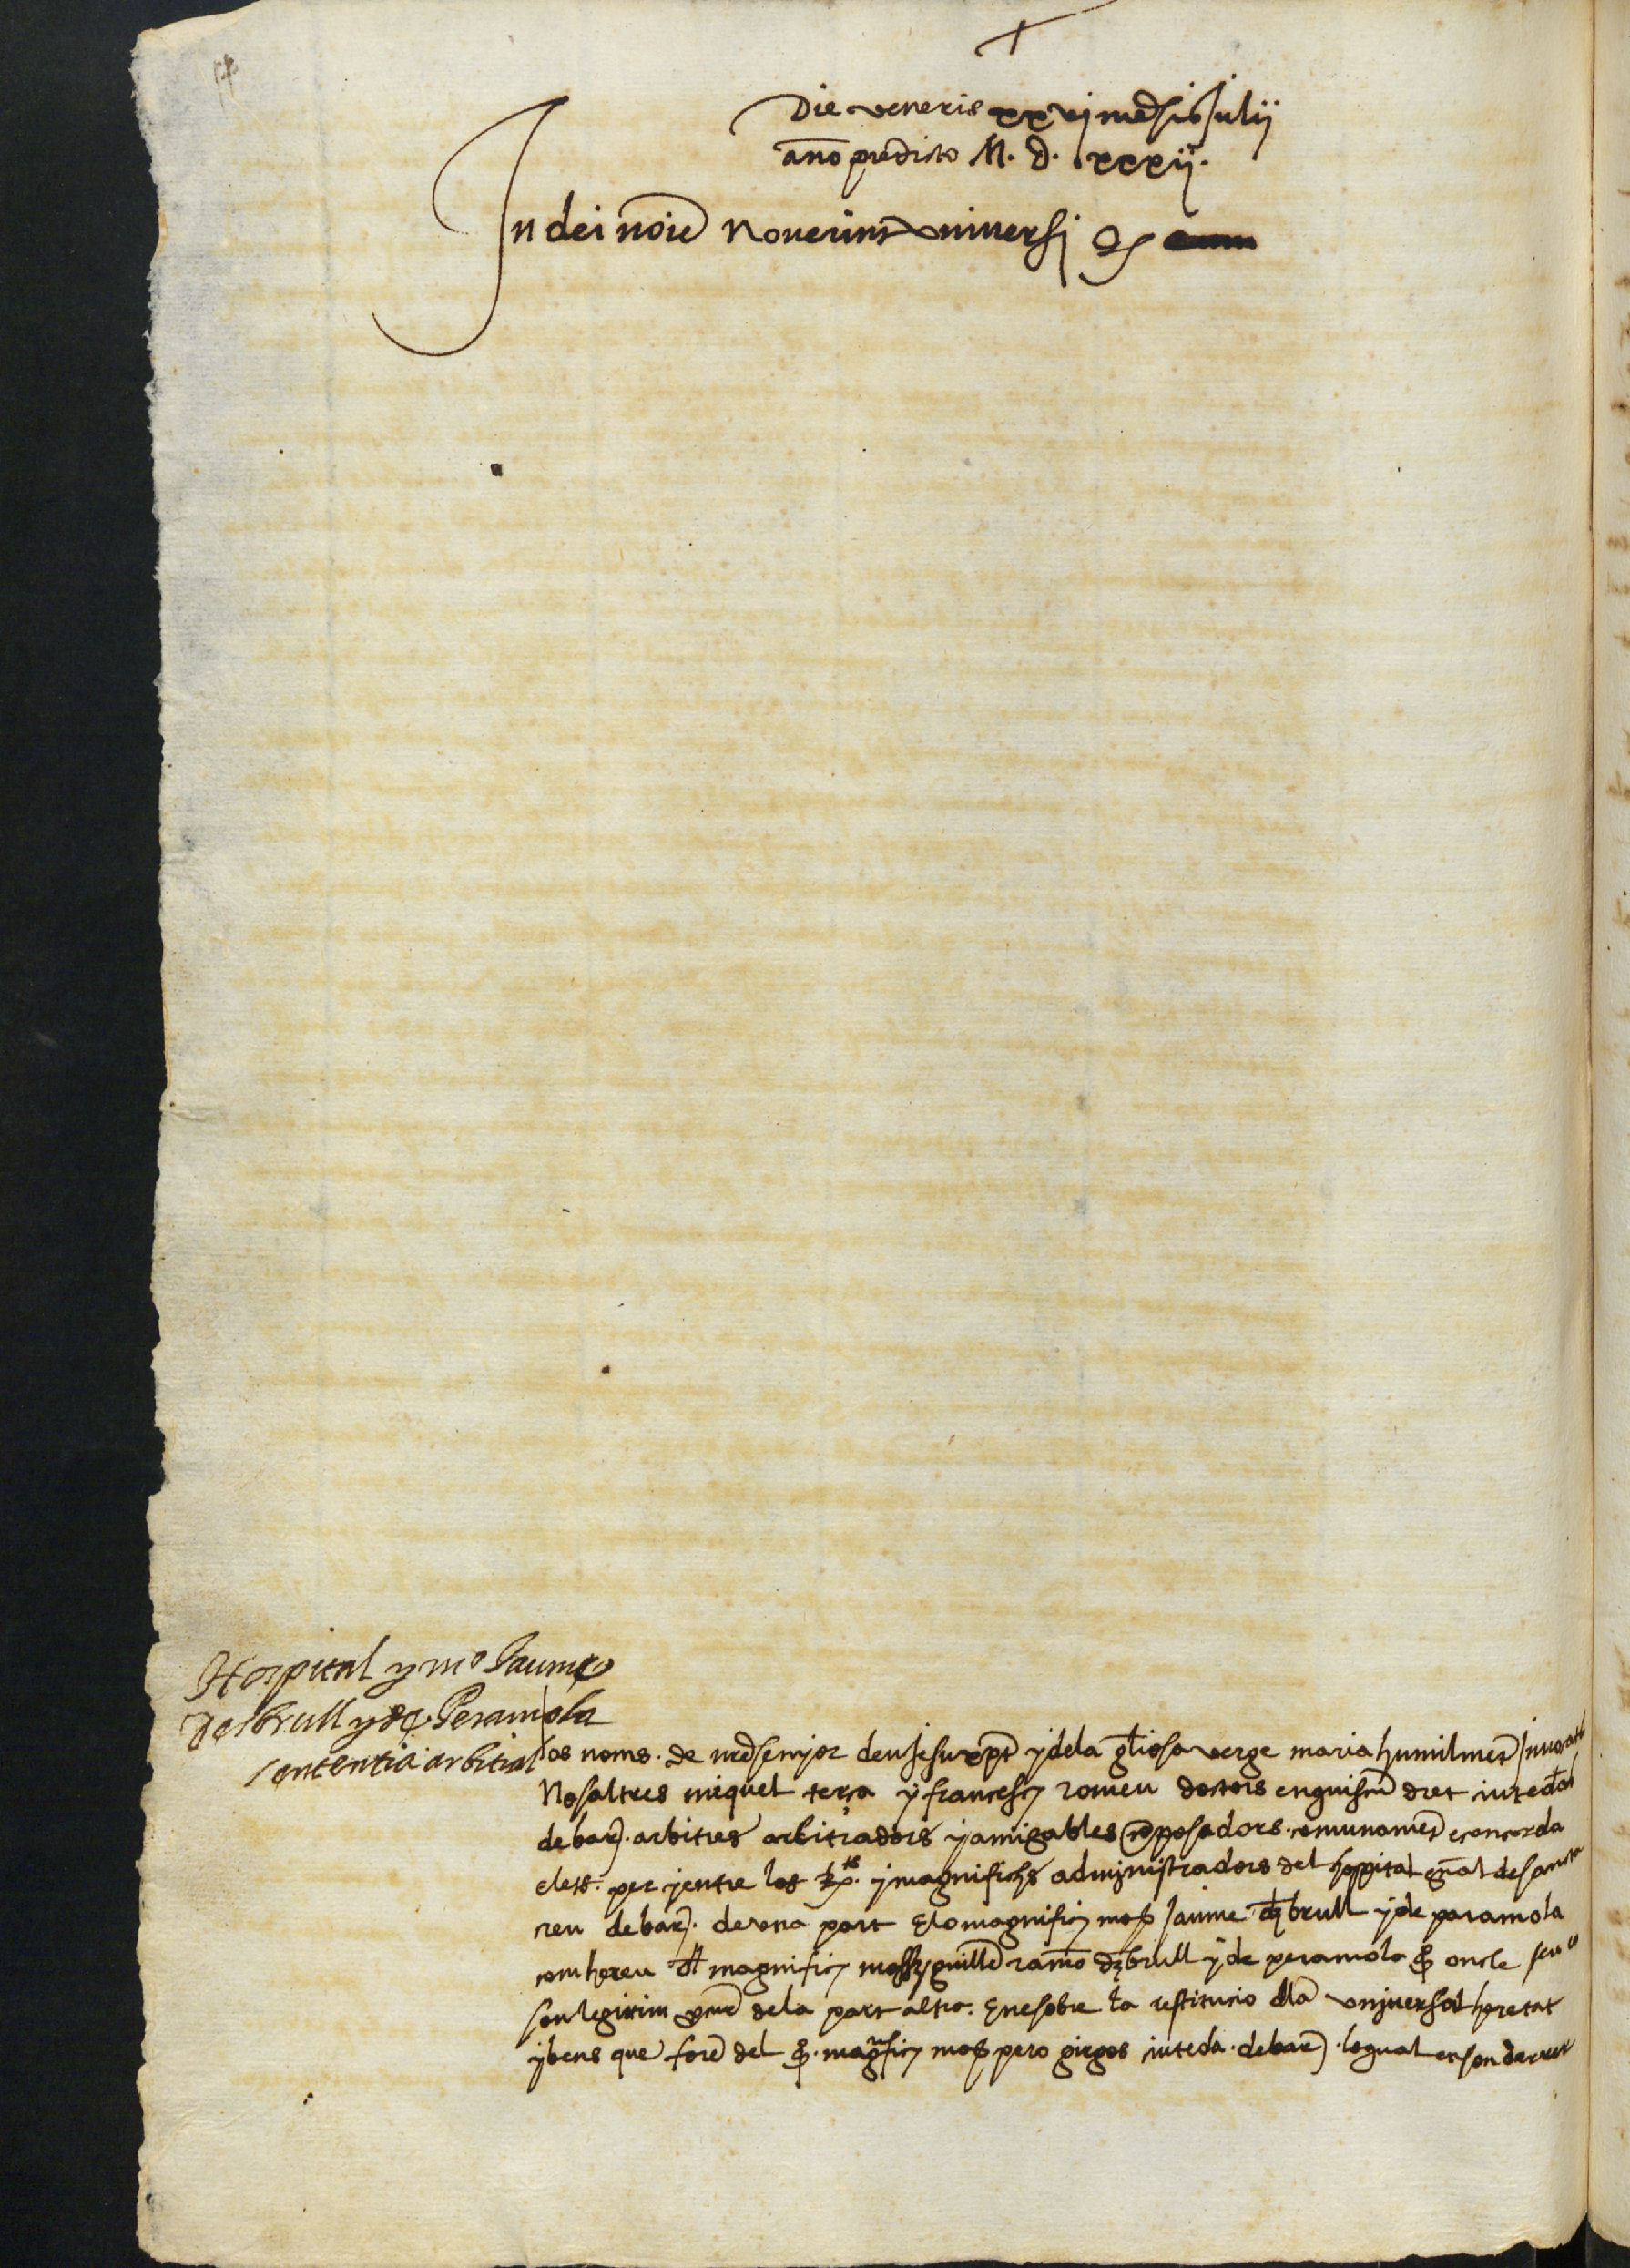 Die veneris xxvj mẽsis Julij
año predicto M. D. xxxij.
In dei noie Noverint universi &
Hospital y mo Jaume
desbrull y de Peramola
sententia arbitral
los noms. de nrẽ senyor deu Jesu xp̃t y dela gl̃iosa verge maria humilmẽt Jnvocats
Nosaltres miquel terça y francesch romeu doctors en quiscũ dret ciutedãs
de barñ. arbitres arbitradors y amigables cõposadors. comunamẽt e concorda
elets. per y entre los y magnifichs admjnistradors del hospital gñal de sancta
creu de barñ. de vna part E lo magnifich moss Jaume dezbrull y de paramola
com hereu dl magnifich mossen guillẽ ramõ dezbrull y de peramola q̊ oncle seu o
son legitim dela part altra. E ne sobre la restitucio dla vnjuersal heretat
y bens que forẽ del q̊. magnifich moss pero girgos ciuteda. de barñ. lo qual en son darrer